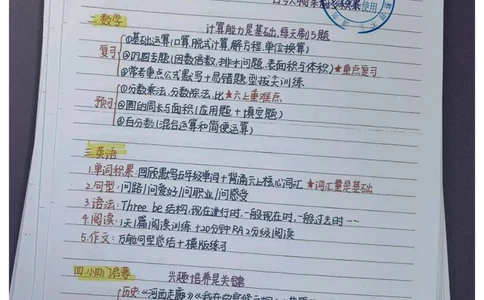 使用
二.数学
计算能力是基础,每天刷15题
复习
①基础运算(口算,脱式计算,解方程,单位换算)
②巩固专题(因数倍数,排水问题,表面积与体积)★重点复习
③常考重点公式默写+易错题型拔尖训练
预习
①分数乘法,分数除法,比★六上重难点
②圆的周长与面积(应用题+填空题)
③百分数(混合运算和简便运算)
三.英语
1.单词积累:回顾默写五年级单词+背诵六上核心词汇 ★词汇量是基础
2.句型:问路/问爱好/问职业/问感受
3.语法:Three be结构,现在进行时,一般现在时,一般过去时--
4.阅读:1天1篇阅读训练+20分钟RAZ分级阅读
5.作文:万能句型总结+模版练习
四.小四门启蒙 兴趣培养是关键
历史:《河西走廊》